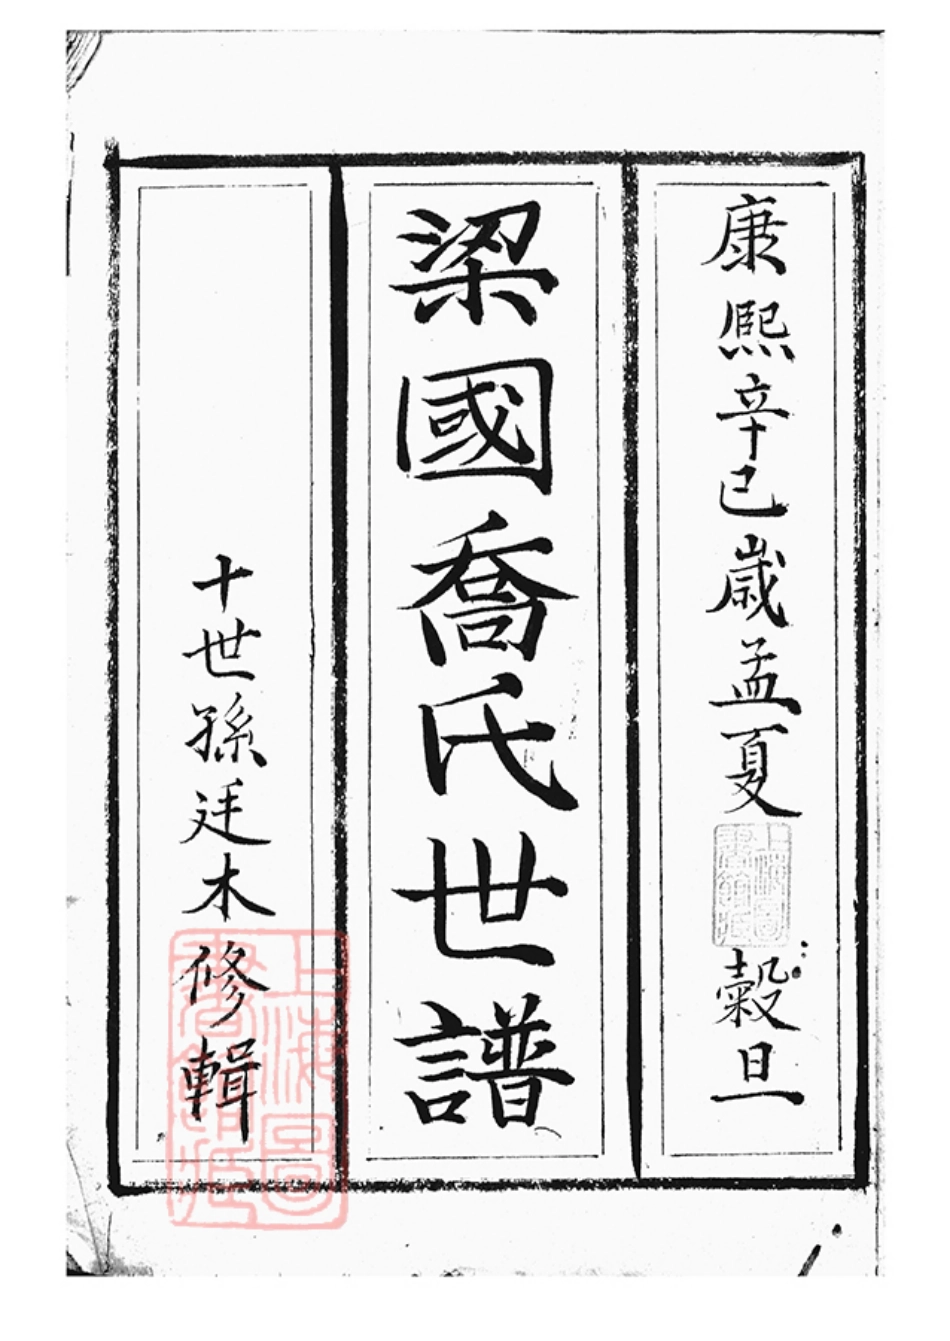 康熙辛巳歲孟夏穀旦
梁國喬氏世譜
十世孫廷木修輯
上海圖書館藏
上海圖書館藏